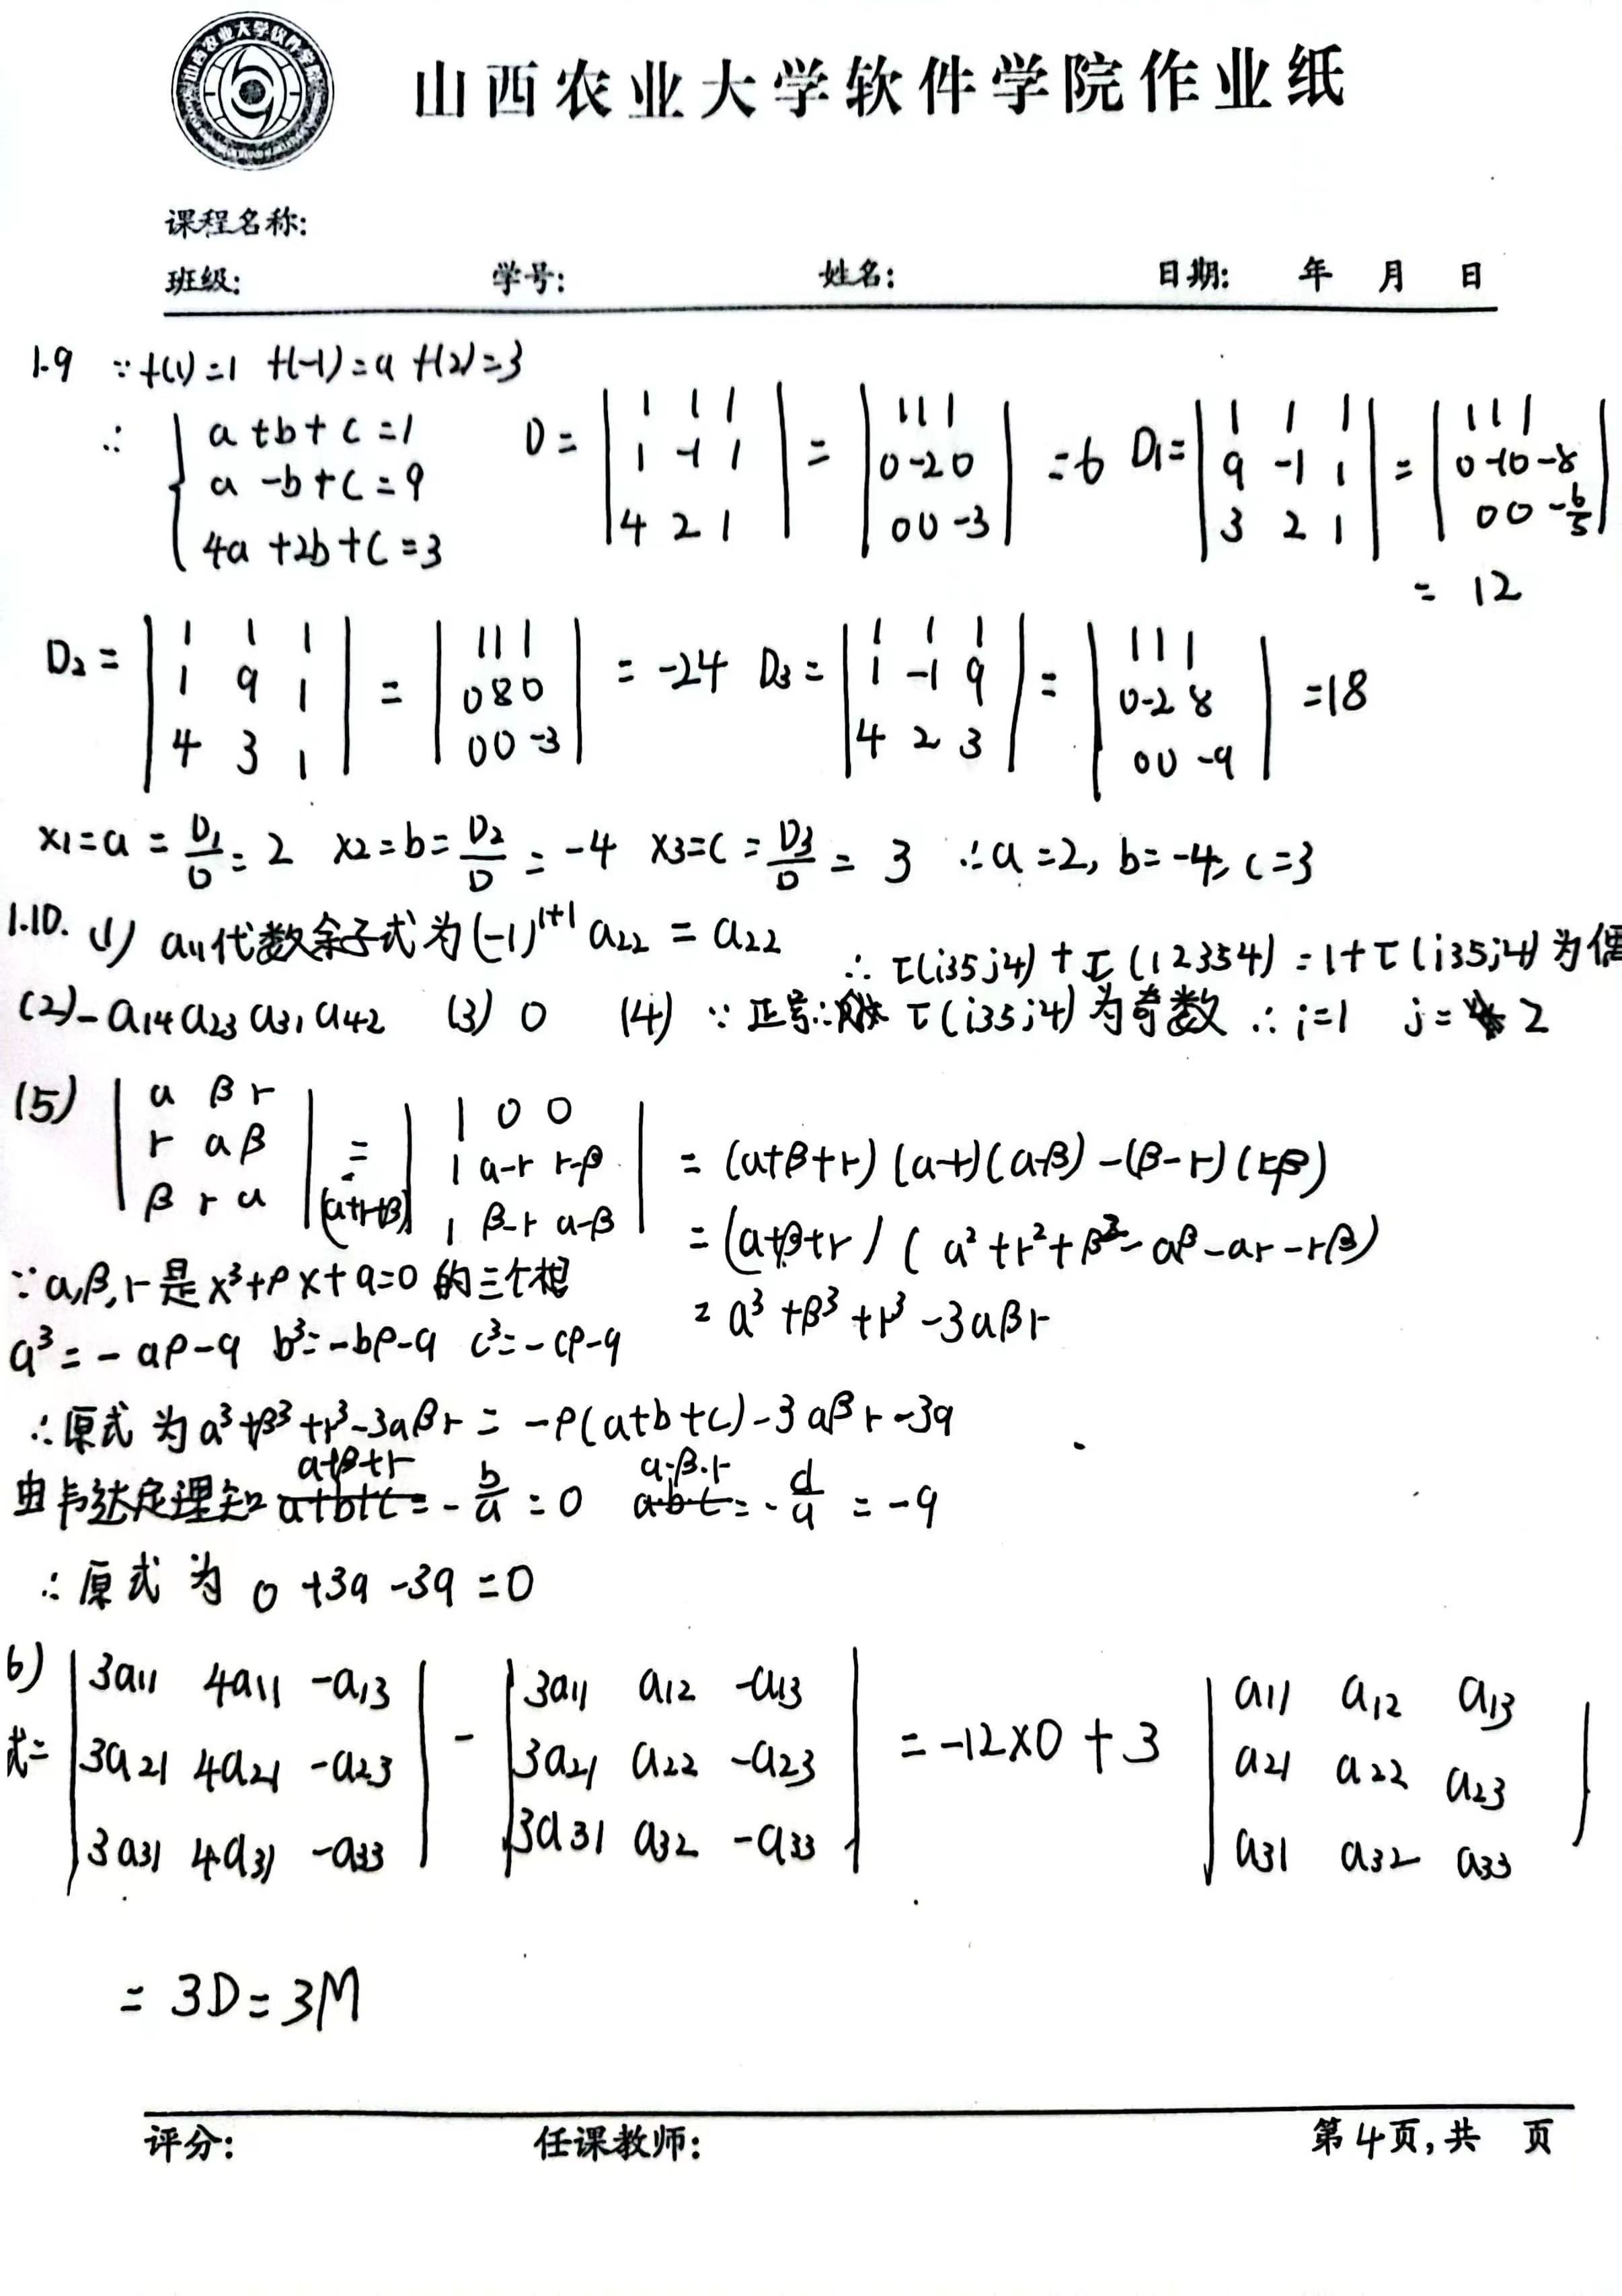 山西农业大学软件学院作业纸
课程名称:
班级: 学号: 姓名: 日期: 年 月 日
1.9 ∵ f(1)=1 f(-1)=9 f(2)=3
∴ { a+b+c=1
a-b+c=9
4a+2b+c=3
D = | 1 1 1
1 -1 1
4 2 1 | = | 1 1 1
0 -2 0
0 0 -3 | =6 D1= | 1 1 1
9 -1 1
3 2 1 | = | 1 1 1
0 -10 -8
0 0 -6/5 |
= 12
D2 = | 1 1 1
1 9 1
4 3 1 | = | 1 1 1
0 8 0
0 0 -3 | = -24 D3 = | 1 1 1
1 -1 9
4 2 3 | = | 1 1 1
0 -2 8
0 0 -9 | =18
x1=a = D1/D = 2 x2=b= D2/D = -4 x3=c = D3/D = 3 ∴a=2, b=-4, c=3
1.10. (1) a11代数余子式为(-1)^1+1 a22 = a22
∴ τ(i35j4) + τ(12354) = 1+τ(i35j4)为偶
(2) -a14a23a31a42 (3) 0 (4) ∵ 正号∴ τ(i35j4)为奇数 ∴ i=1 j= 2
(5) | a β r
r a β
β r a | = (a+r+β) | 1 0 0
1 a-r r-β
1 β-r a-β | = (a+β+r)(a-r)(a-β)-(β-r)(r-β)
= (a+β+r)(a²+r²+β²-aβ-ar-rβ)
∵ a,β,r是x³+px+q=0的三个根
= a³+β³+r³-3aβr
a³=-ap-q b³=-bp-q c³=-cp-q
∴原式为a³+β³+r³-3aβr = -p(a+b+c)-3aβr-3q
a+β+r a·β·r
由韦达定理知 a+b+c = -b/a = 0 a·b·c = -d/a = -q
∴原式为 0+3q-3q=0
6)
式= | 3a11 4a11 -a13
3a21 4a21 -a23
3a31 4a31 -a33 | - | 3a11 a12 -a13
3a21 a22 -a23
3a31 a32 -a33 | = -12×0 + 3 | a11 a12 a13
a21 a22 a23
a31 a32 a33 |
= 3D = 3M
评分: 任课教师: 第4页,共 页